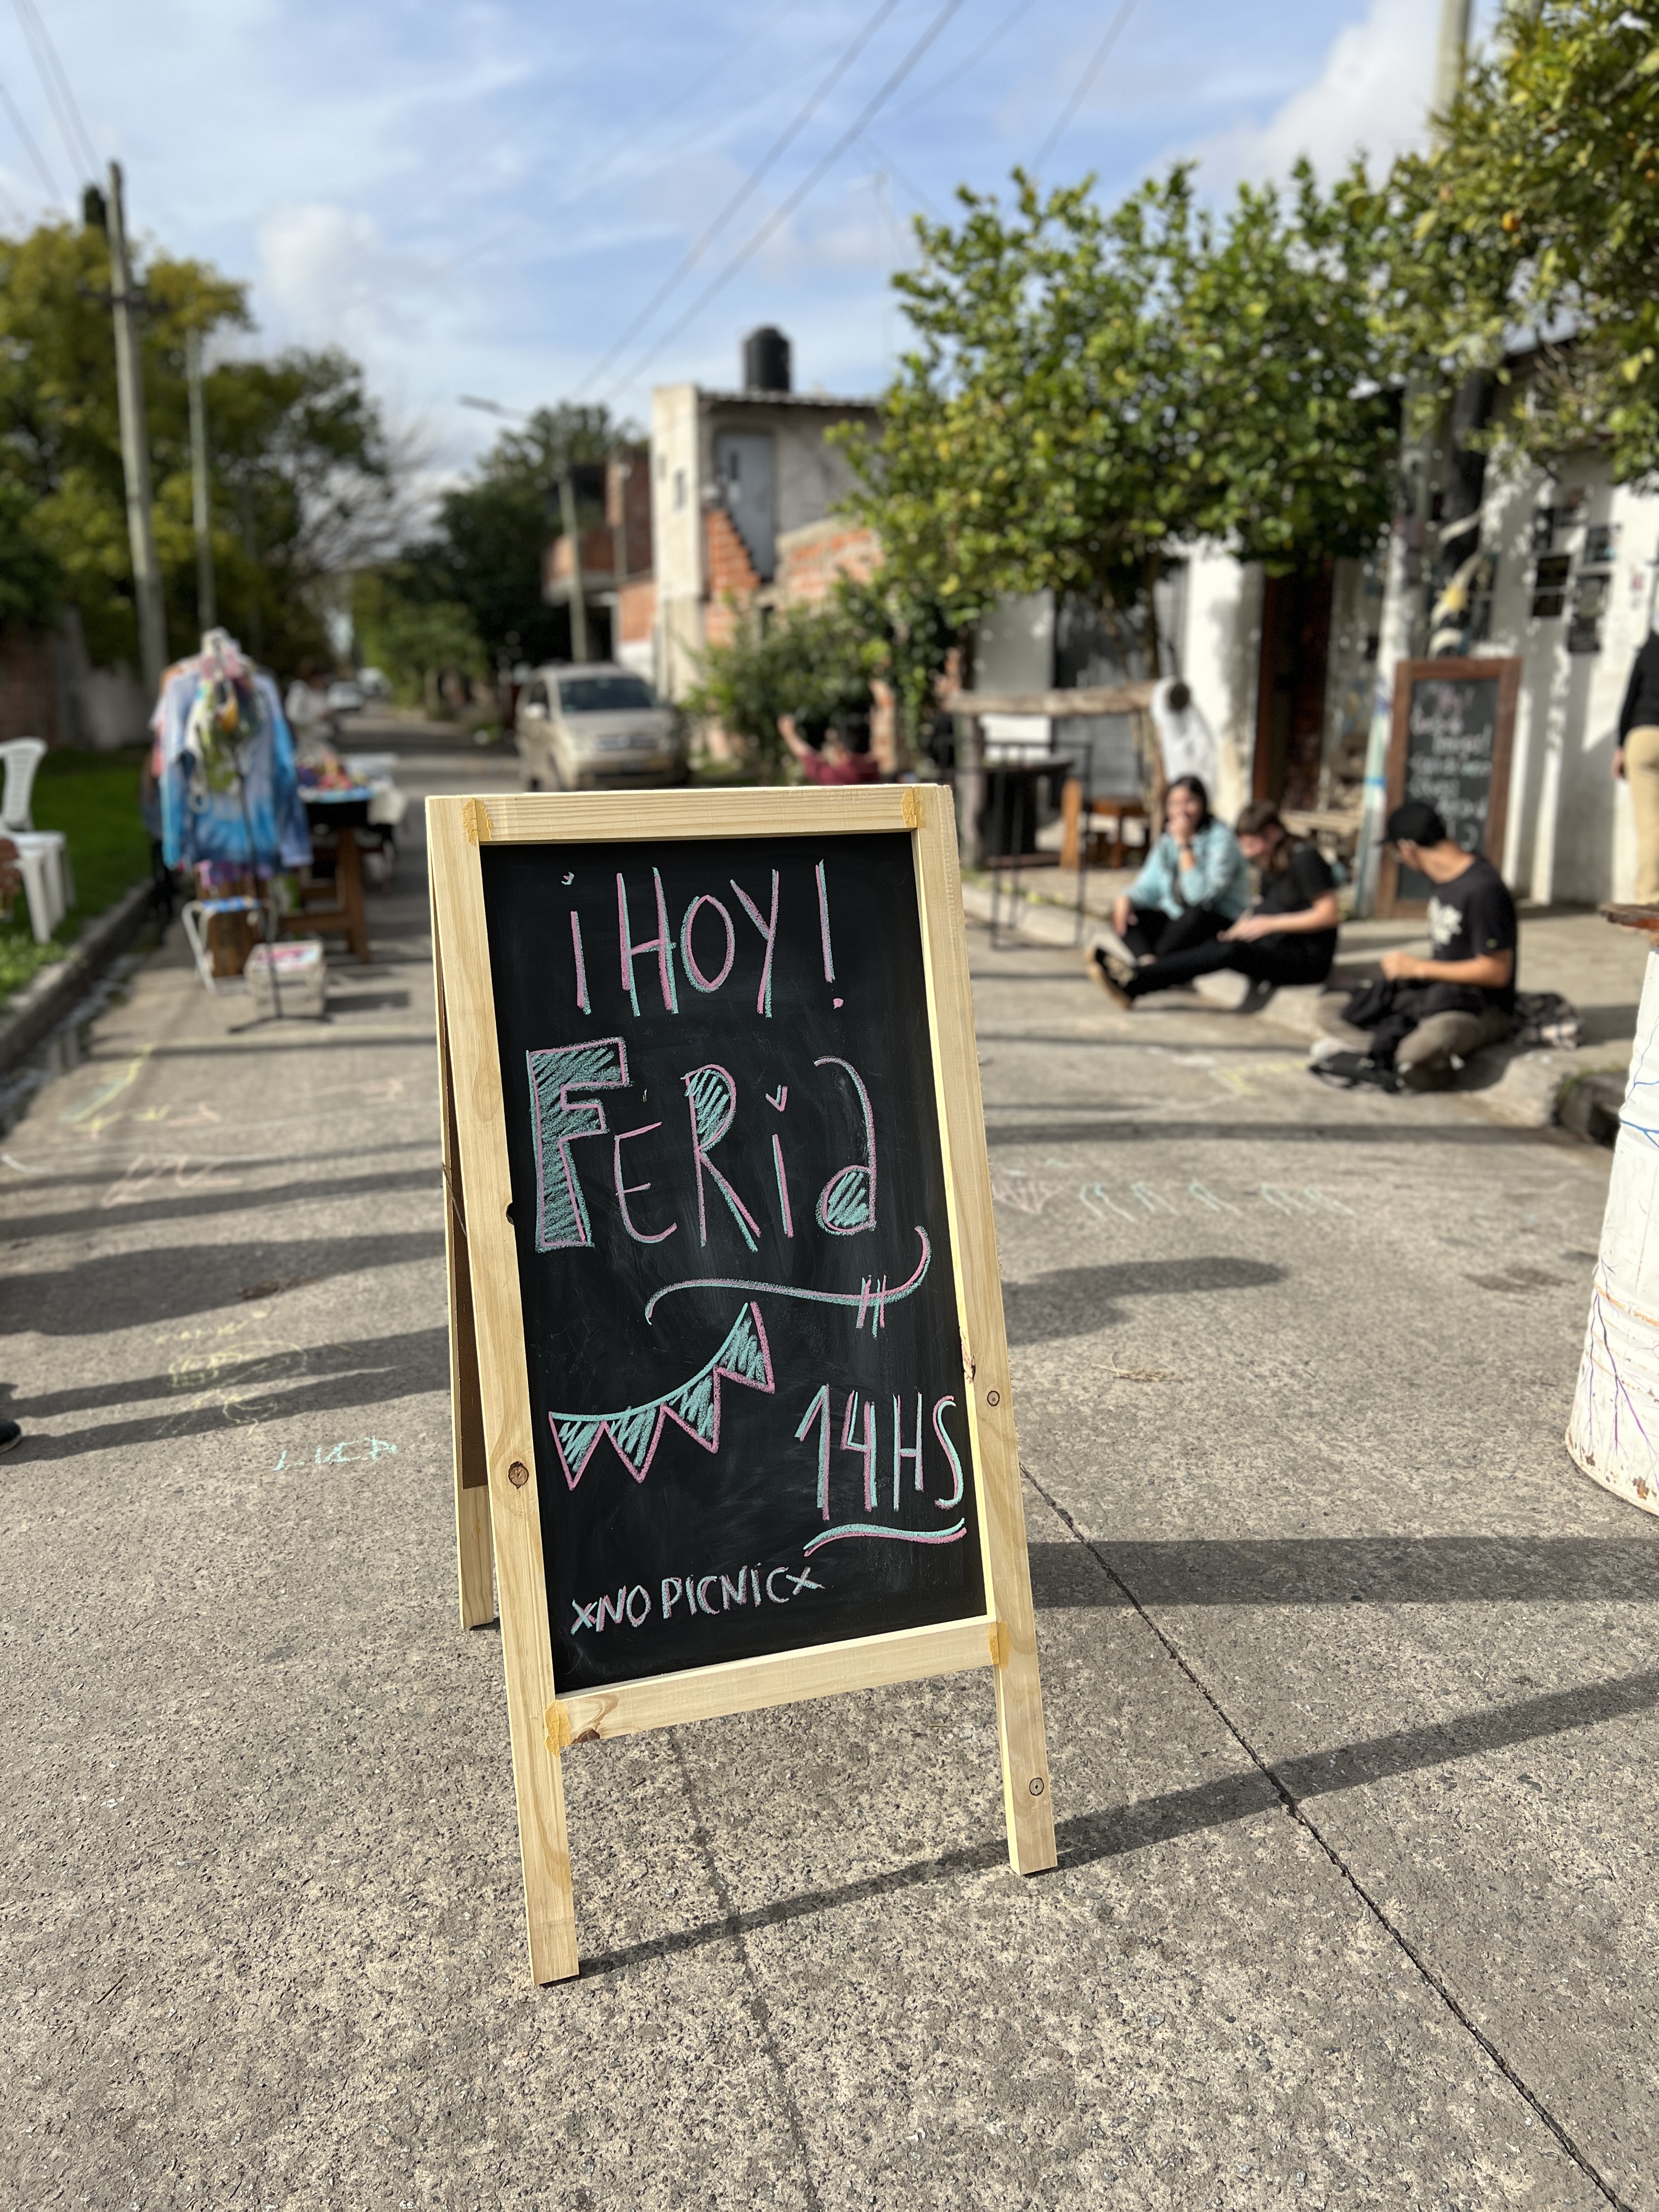 ¡HOY!
FERia
14HS
xNO PICNICx